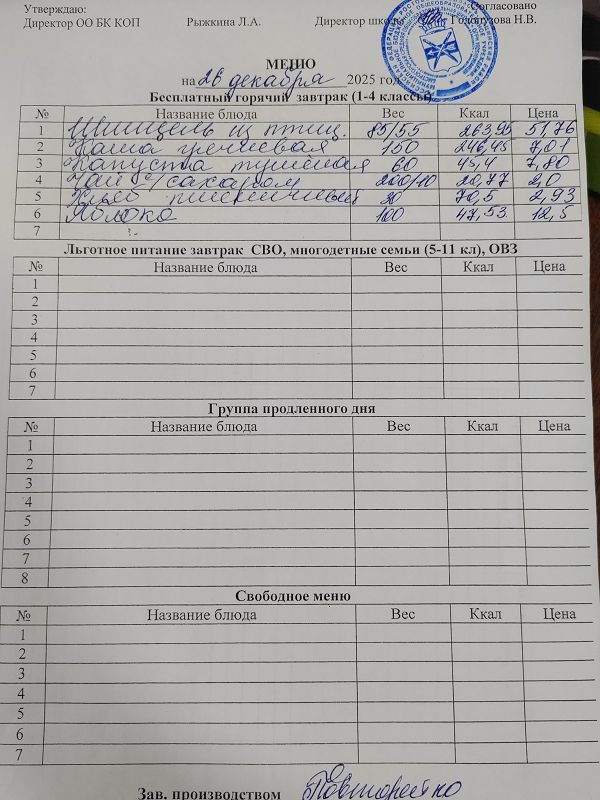 Утверждаю: Согласовано
Директор ОО БК КОП Рыжкина Л.А. Директор школы Годопузова Н.В.
МЕНЮ
на 26 декабря 2025 год
Бесплатный горячий завтрак (1-4 классы)
№ Название блюда Вес Ккал Цена
1 Шницель из птиц. 85/55 263,95 51,76
2 Каша гречневая 150 246,45 7,01
3 Капуста тушёная 60 45,4 7,80
4 Чай с/сахаром 200/10 20,77 2,0
5 Хлеб пшеничный 30 70,5 2,93
6 Яблоко 100 47,53 12,5
7
Льготное питание завтрак СВО, многодетные семьи (5-11 кл), ОВЗ
№ Название блюда Вес Ккал Цена
1
2
3
4
5
6
7
Группа продленного дня
№ Название блюда Вес Ккал Цена
1
2
3
4
5
6
7
8
Свободное меню
№ Название блюда Вес Ккал Цена
1
2
3
4
5
6
7
Зав. производством